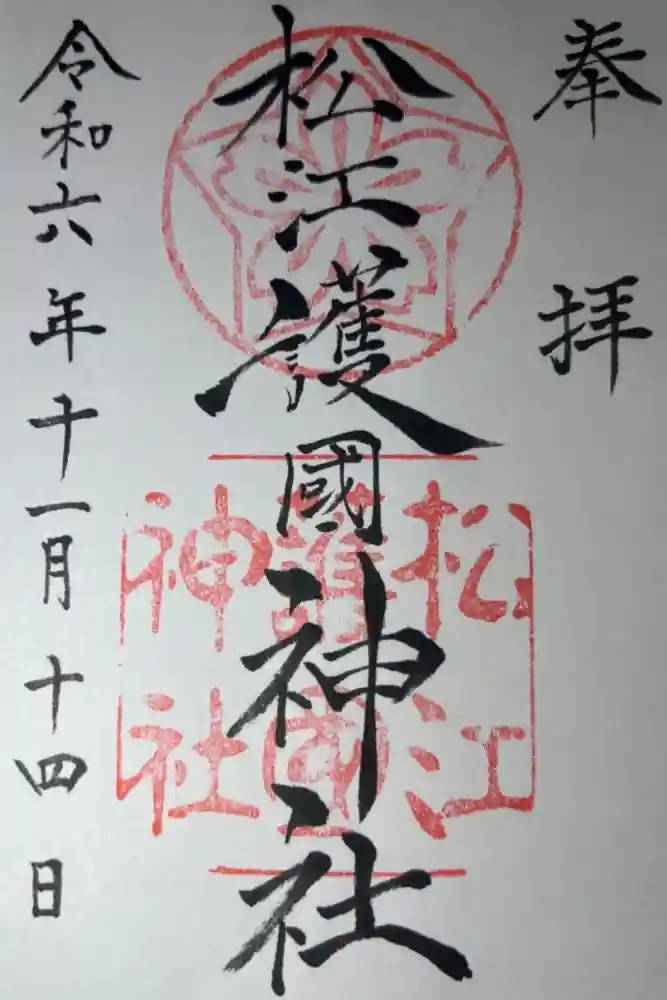 奉拝
松江護國神社
松江護国神社
令和六年十一月十四日